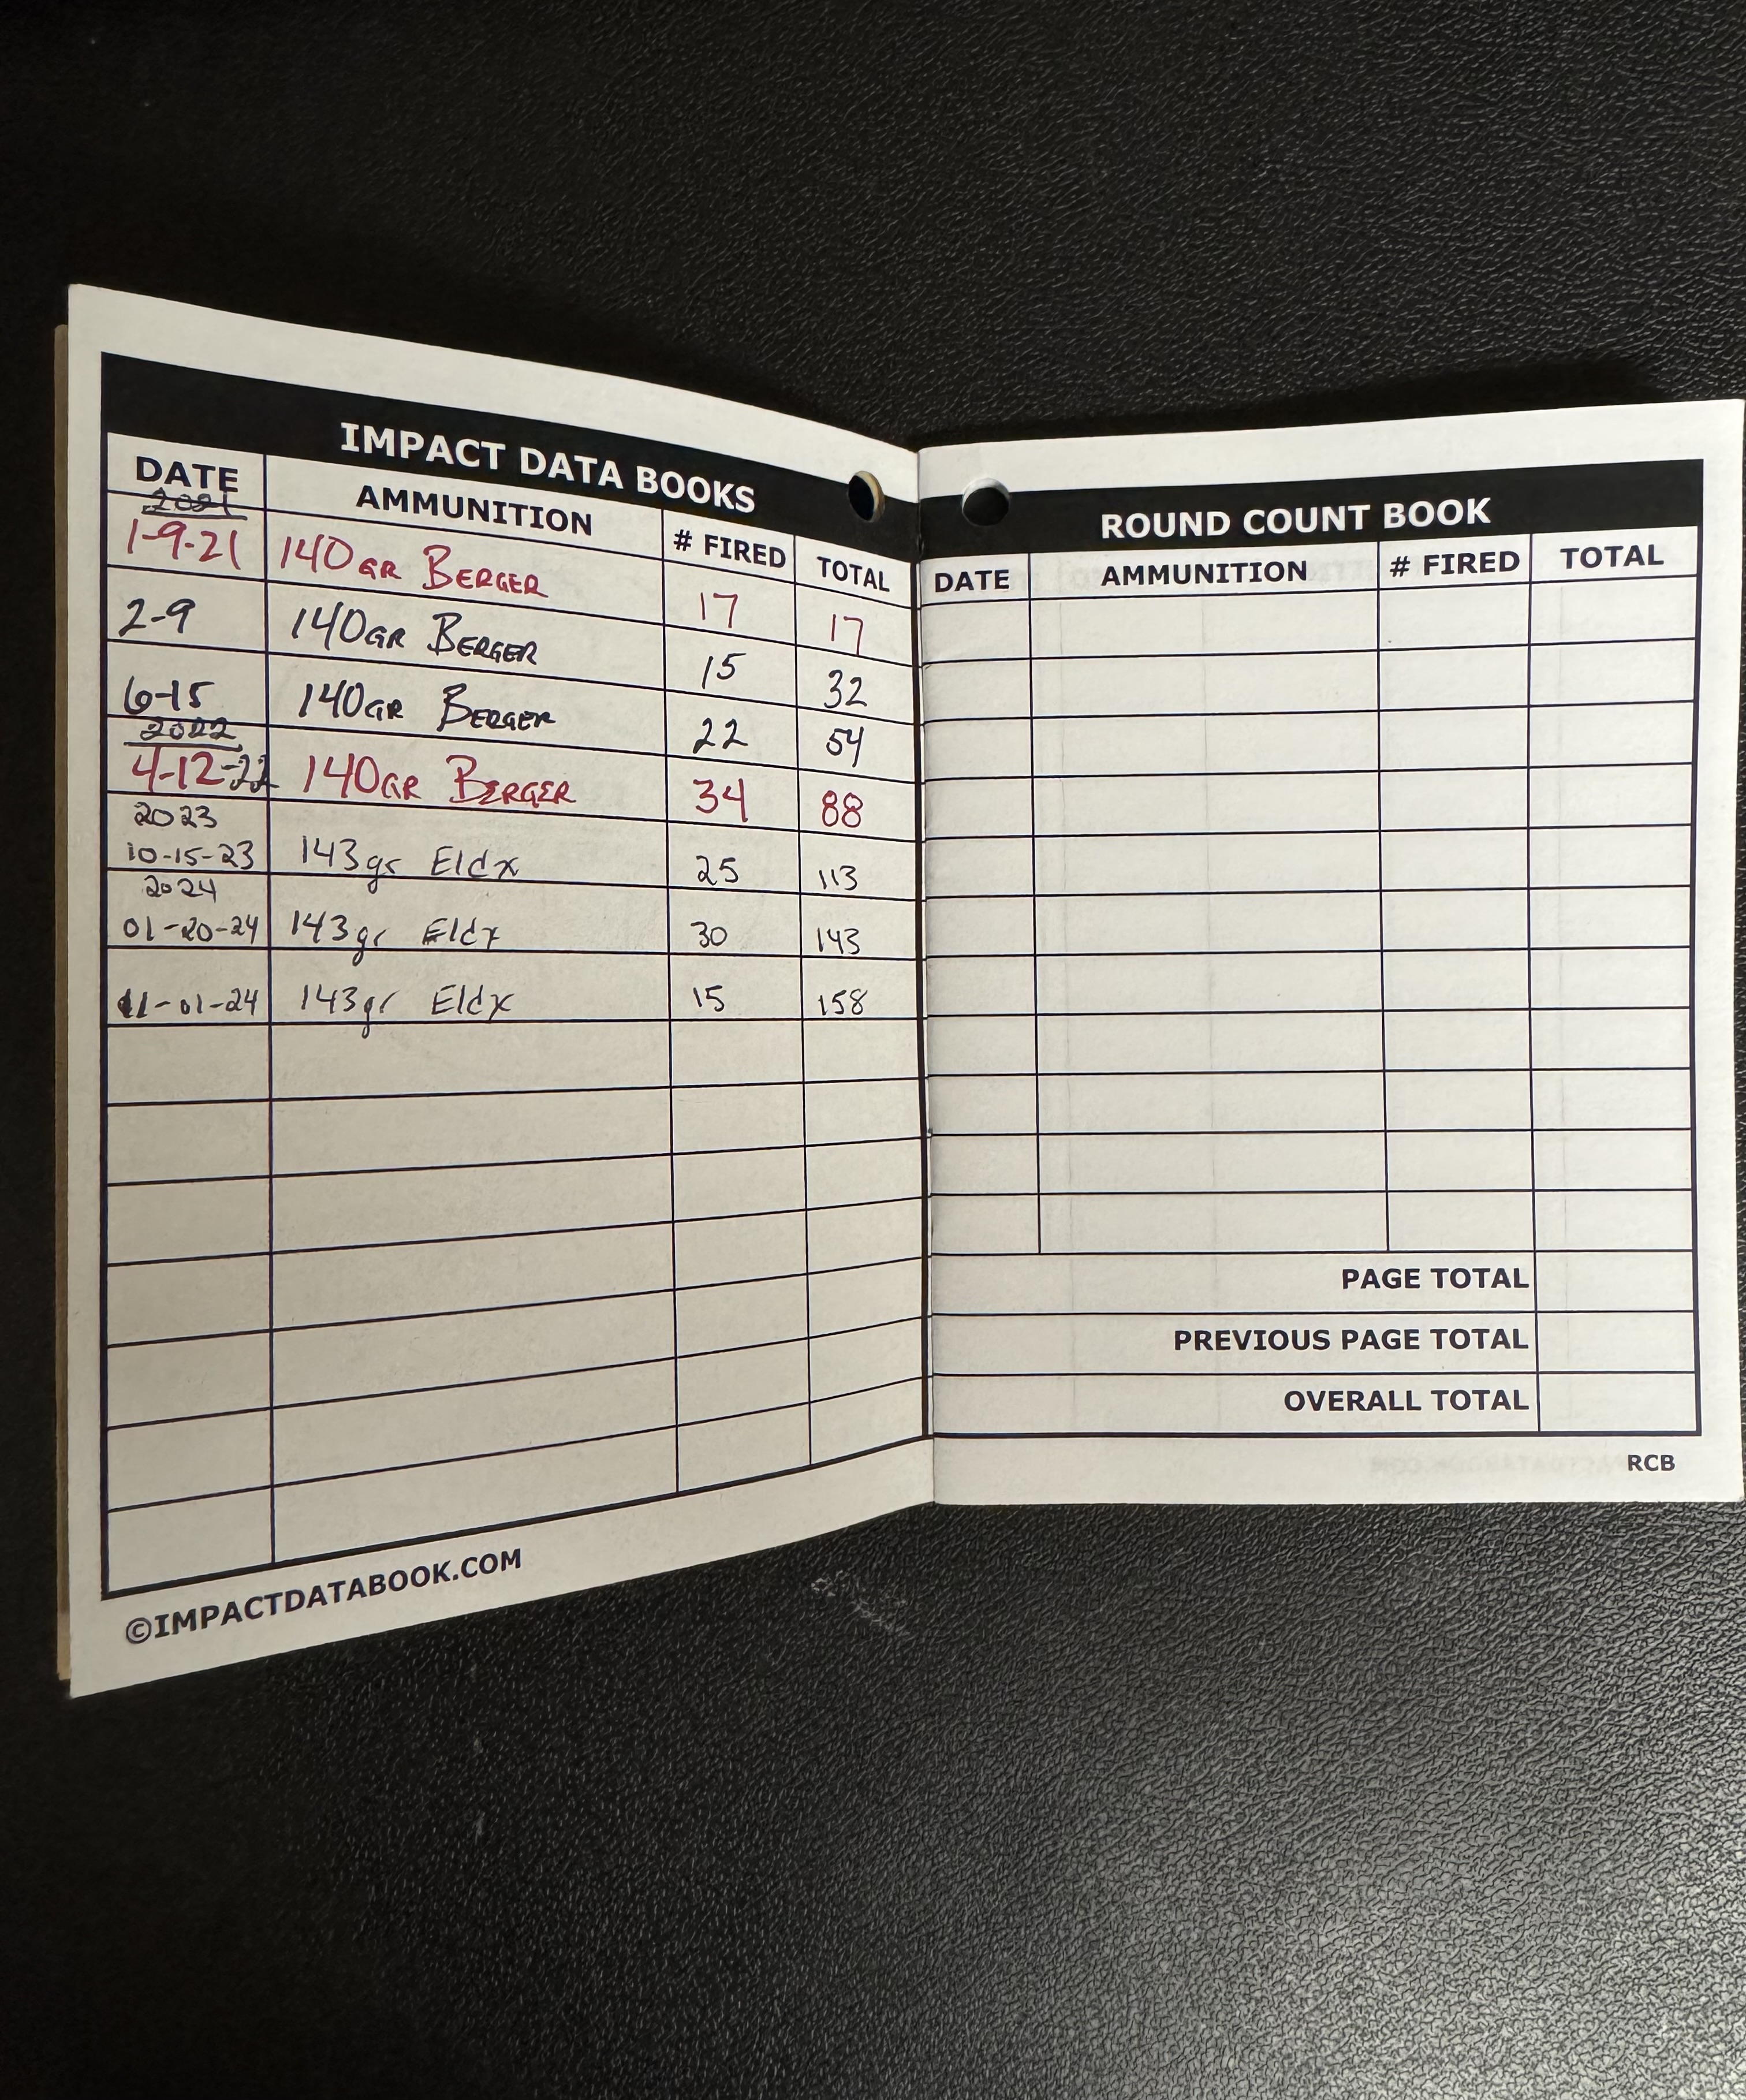 IMPACT DATA BOOKS
DATE AMMUNITION # FIRED TOTAL
2021
1-9-21 140GR BERGER 17 17
2-9 140GR BERGER 15 32
6-15 140GR BERGER 22 54
2022
4-12-22 140GR BERGER 34 88
2023
10-15-23 143gr Eldx 25 113
2024
01-20-24 143gr Eldx 30 143
11-01-24 143gr Eldx 15 158
©IMPACTDATABOOK.COM
ROUND COUNT BOOK
DATE AMMUNITION # FIRED TOTAL
PAGE TOTAL
PREVIOUS PAGE TOTAL
OVERALL TOTAL
RCB